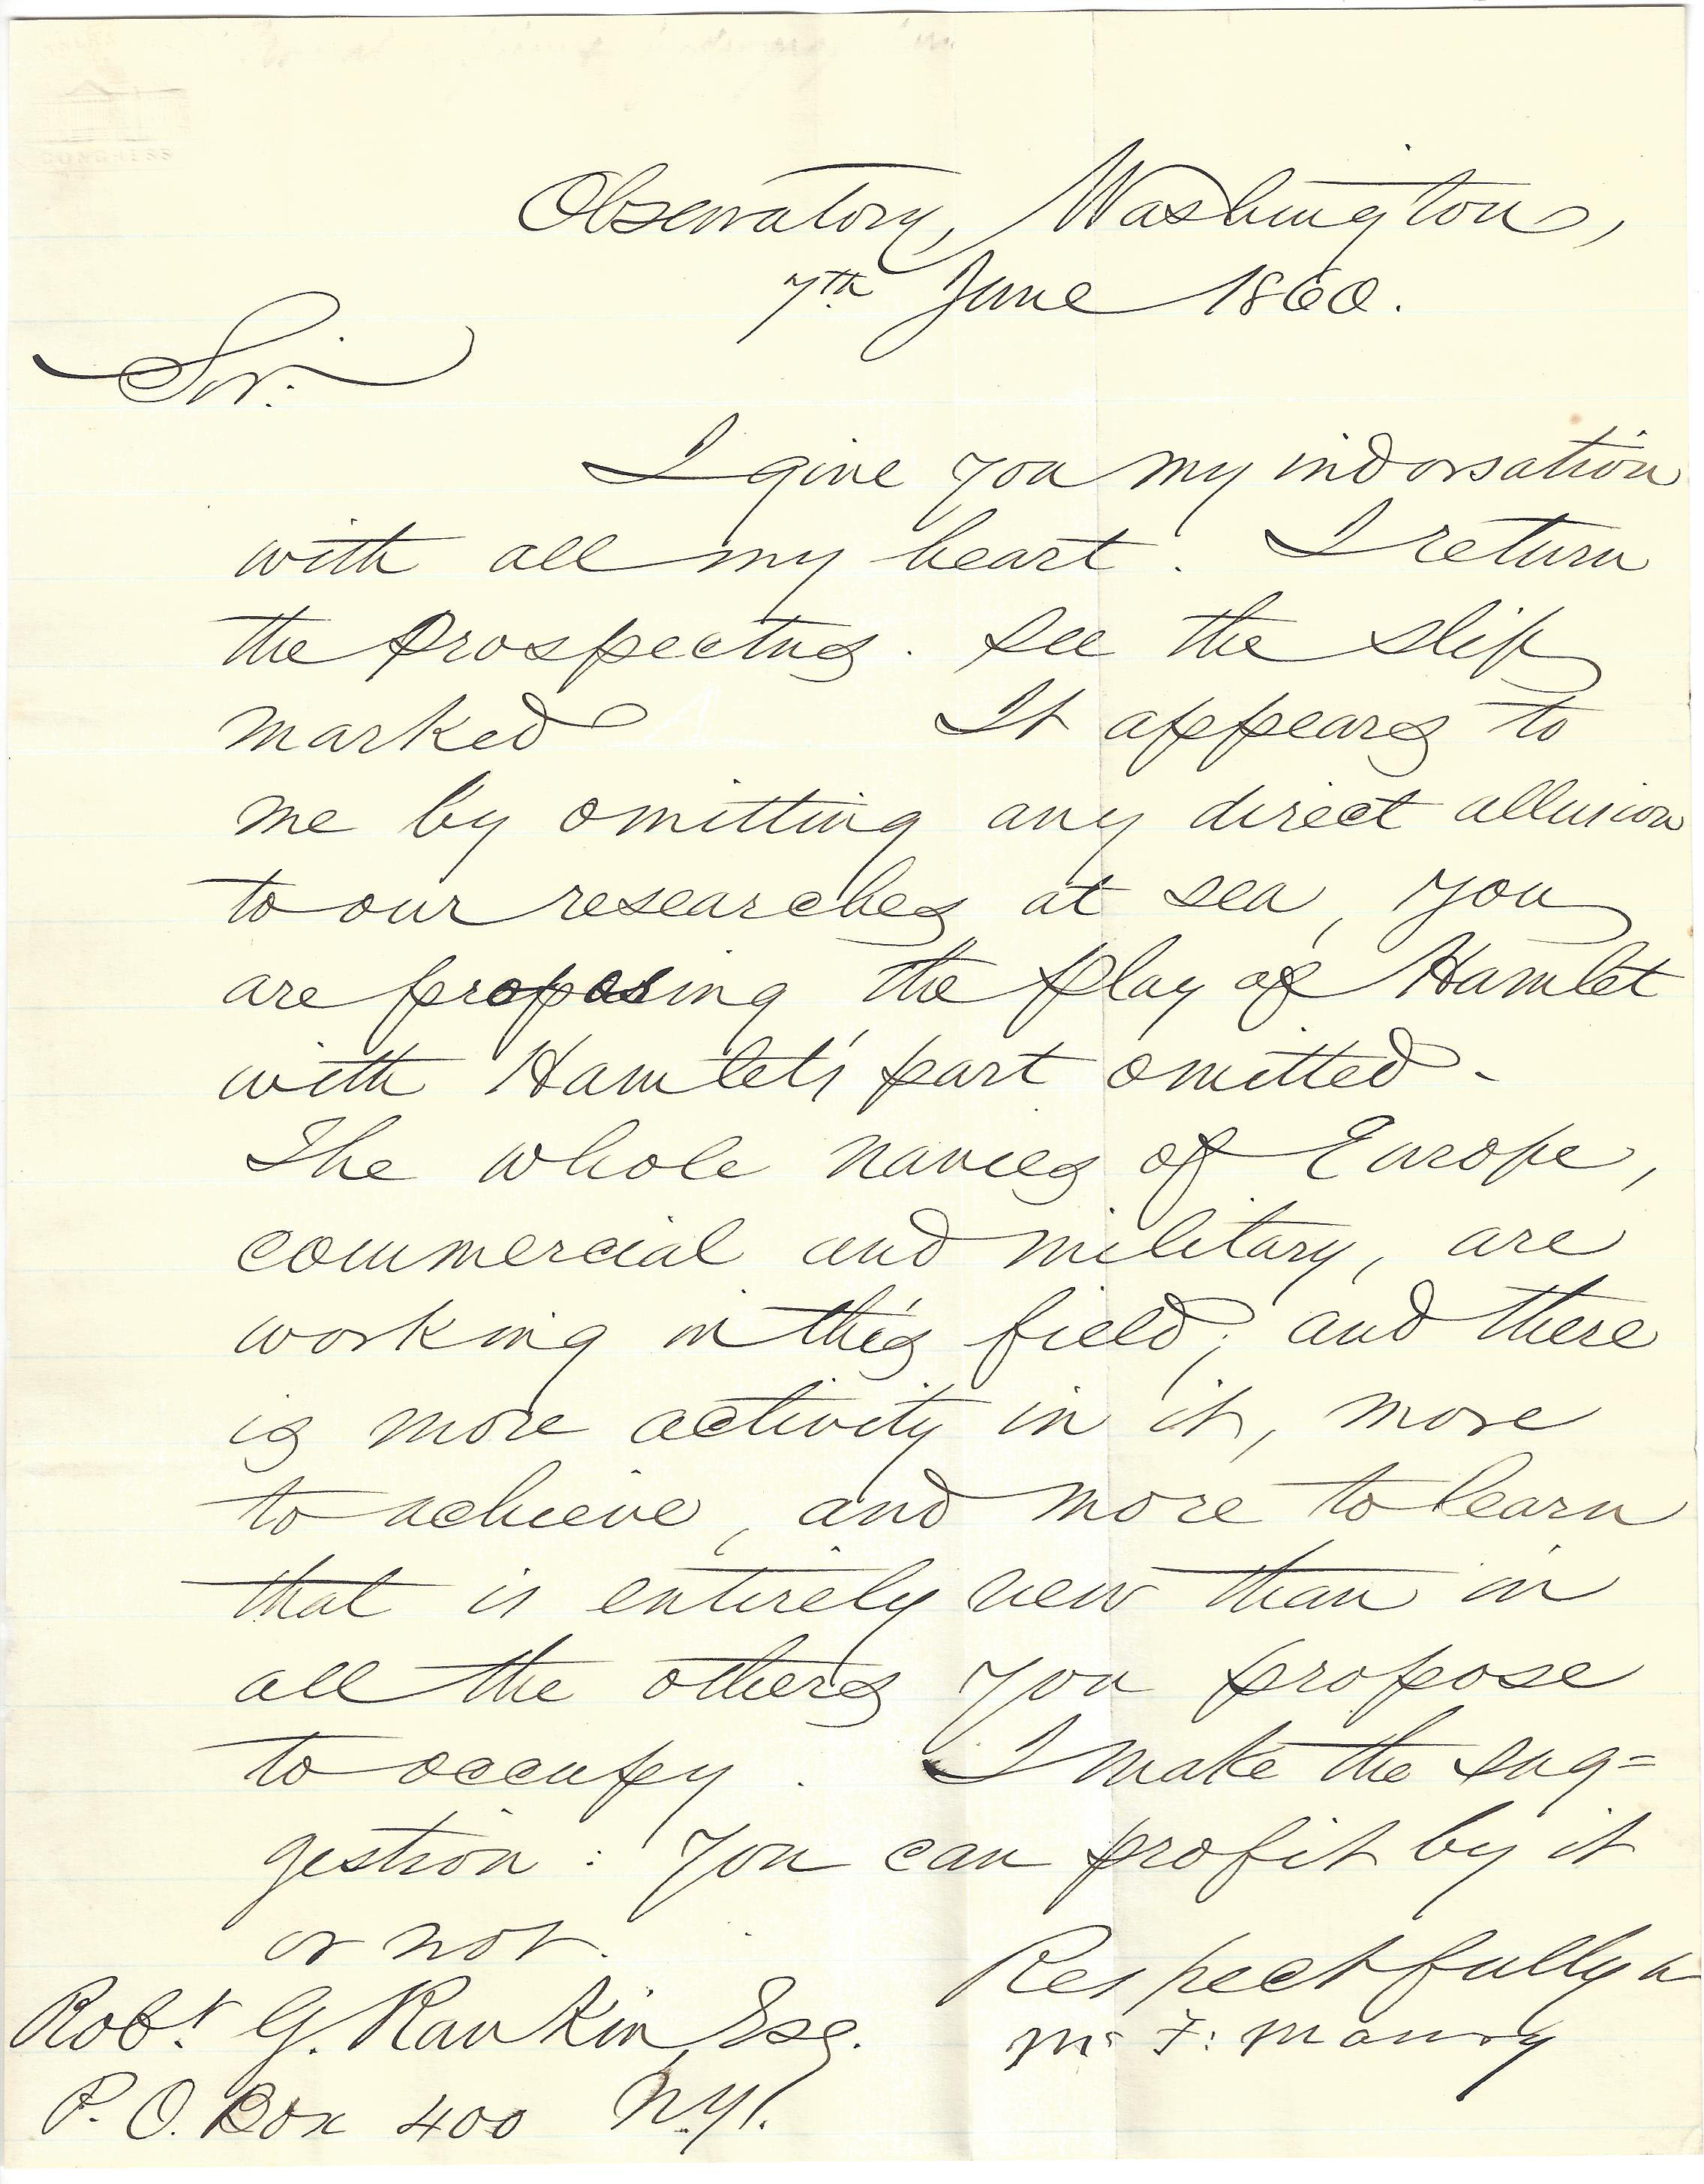 CONGRESS
Observatory, Washington,
7th June 1860.
Sir:
I give you my indorsation
with all my heart. I return
the Prospectus. See the slip
marked It appears to
me by omitting any direct allusion
to our researches at sea, you
are proposing the play of Hamlet
with Hamlet's part omitted -
The whole navies of Europe,
commercial and military, are
working in this field; and there
is more activity in it, more
to achieve, and more to learn
that is entirely new than in
all the others you propose
to occupy. I make the sug=
gestion: You can profit by it
or not.
Respectfully
M. F: Maury
Robt. G. Rankin Esq.
P. O. Box 400 N.Y.